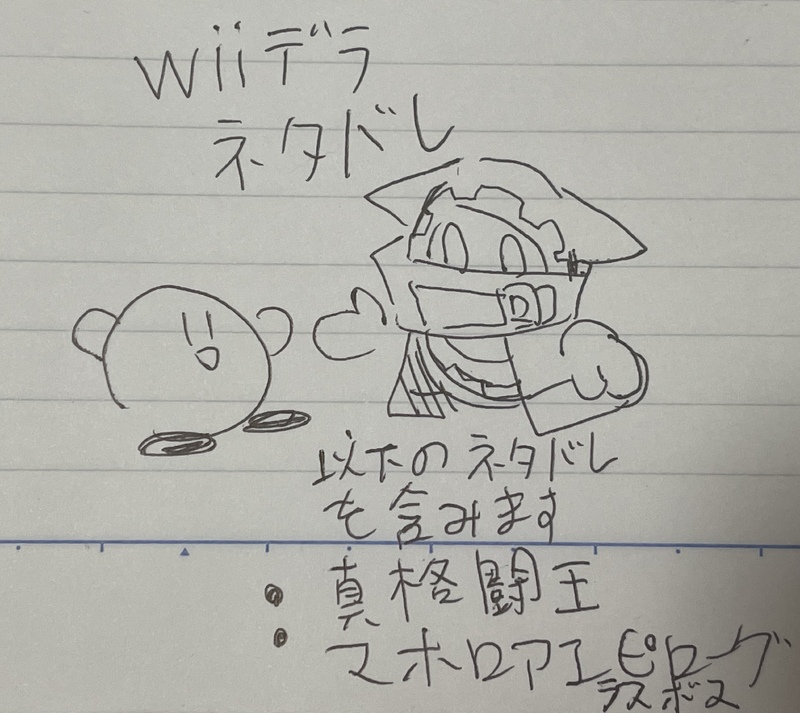 Wiiデラ
ネタバレ
以下のネタバレ
を含みます
・真格闘王
・マホロアエピローグ
ラスボス